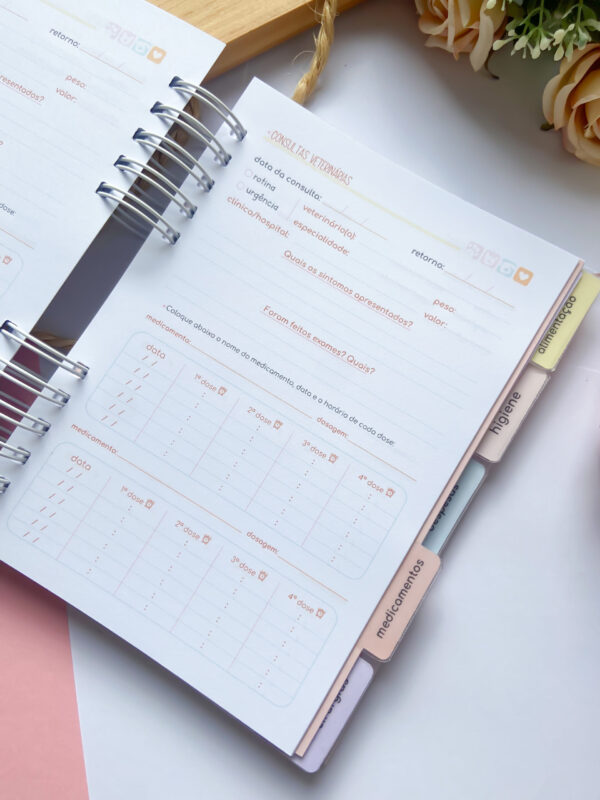 retorno:
peso:
valor:
dose:
CONSULTAS VETERINÁRIAS
data da consulta:
rotina
urgência
veterinário(a):
retorno:
clínica/hospital:
especialidade:
peso:
valor:
Quais os sintomas apresentados?
Foram feitos exames? Quais?
Coloque abaixo o nome do medicamento, data e o horário de cada dose:
medicamento:
dosagem:
data
1ª dose
2ª dose
3ª dose
4ª dose
medicamento:
dosagem:
data
1ª dose
2ª dose
3ª dose
4ª dose
alimentação
higiene
medicamentos